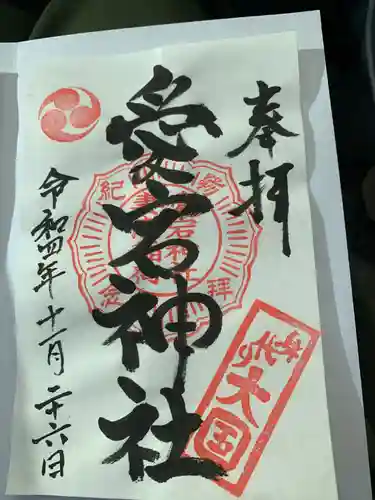 奉拝
愛宕神社
令和四年十一月二十六日
参拝紀念
大国